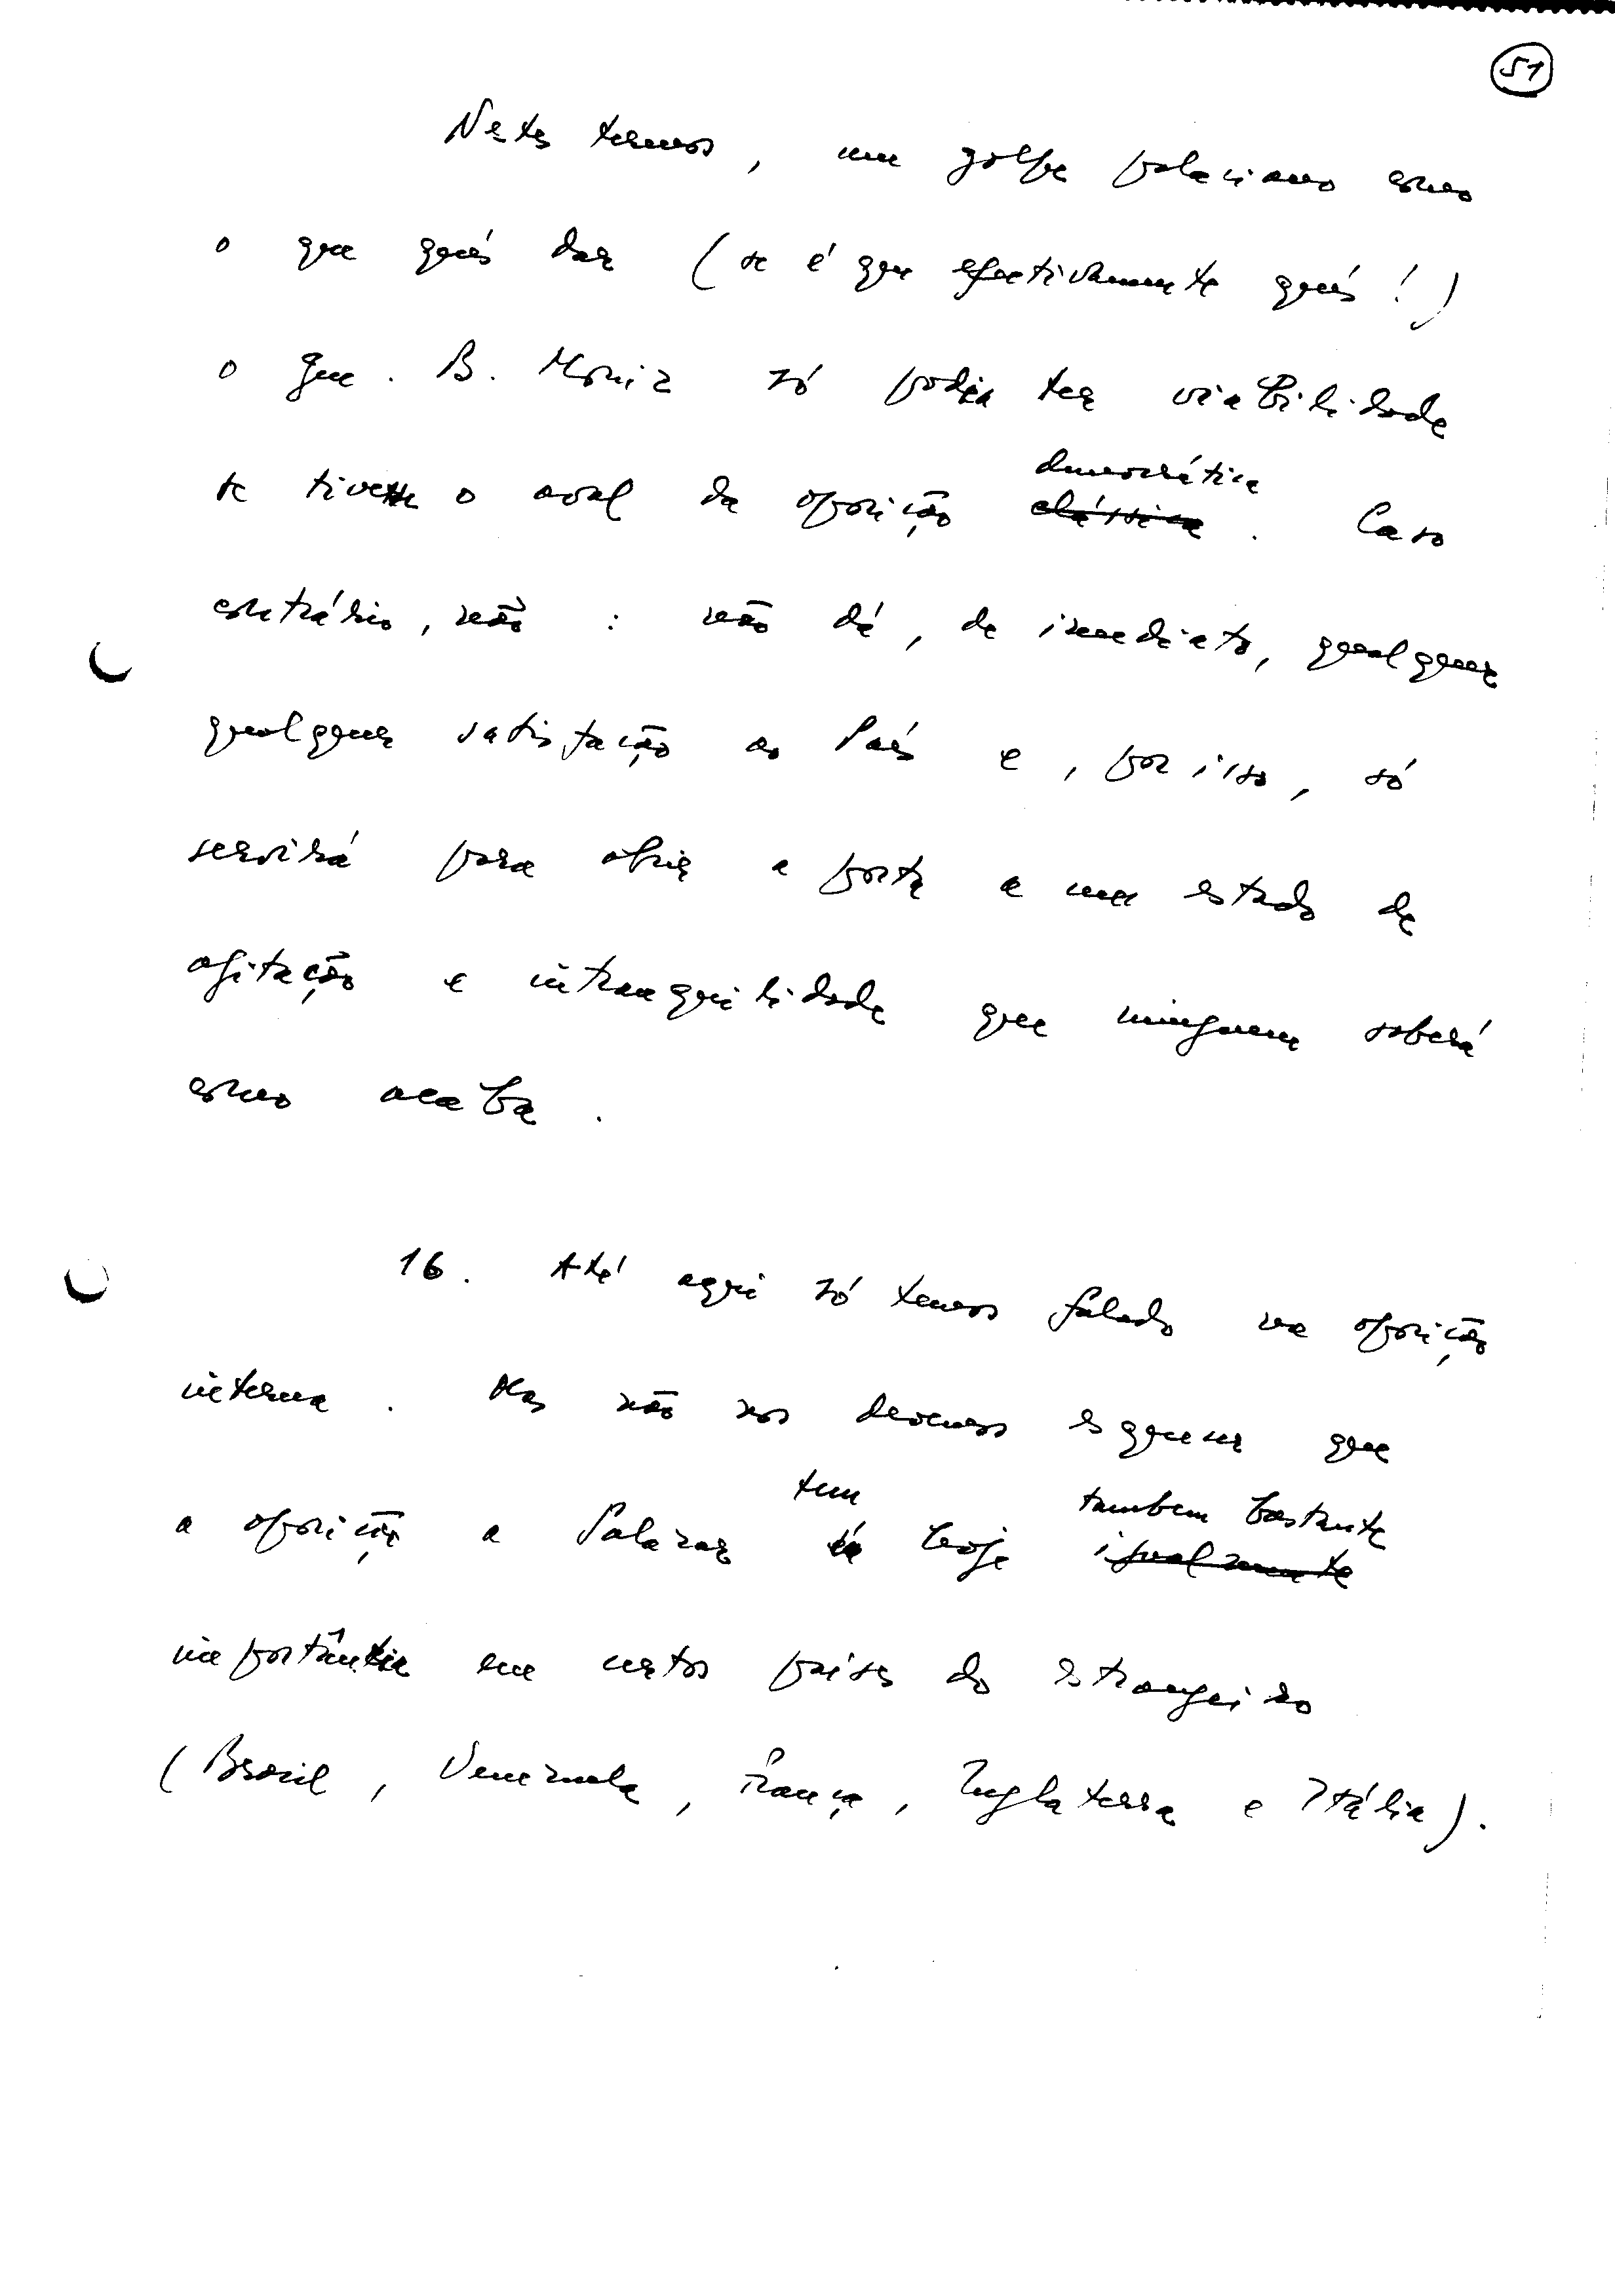 51
Nestes termos, um golpe palaciano como
o que quís dar (se é que efectivamente quís!)
o Gen. B. Moniz só podia ter viabilidade
se tivesse o aval da oposição democrática
clássica. Caso
contrário, não: não dá, de imediato, qualquer
qualquer satisfação ao País e, por isso, só
servirá para abrir a porta a um estado de
agitação e intranquilidade que ninguem saberá
como acaba.
16. Até aqui só temos falado na oposição
interna. Mas não nos devemos esquecer que
a oposição a Salazar tem hoje tambem bastante
igualmente
importância em certos países do estrangeiro
(Brasil, Venezuela, França, Inglaterra e Itália).